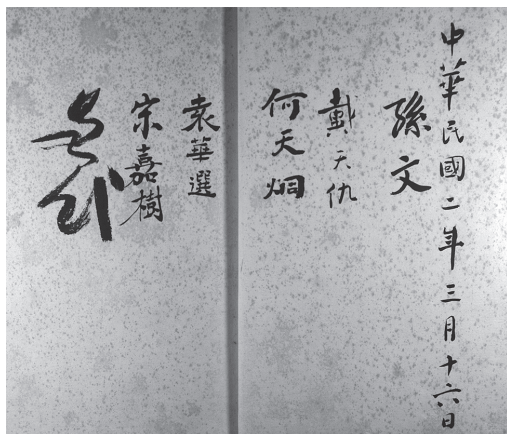 中華民國二年三月十六日
孫文
戴天仇
何天炯
袁華選
宋嘉樹